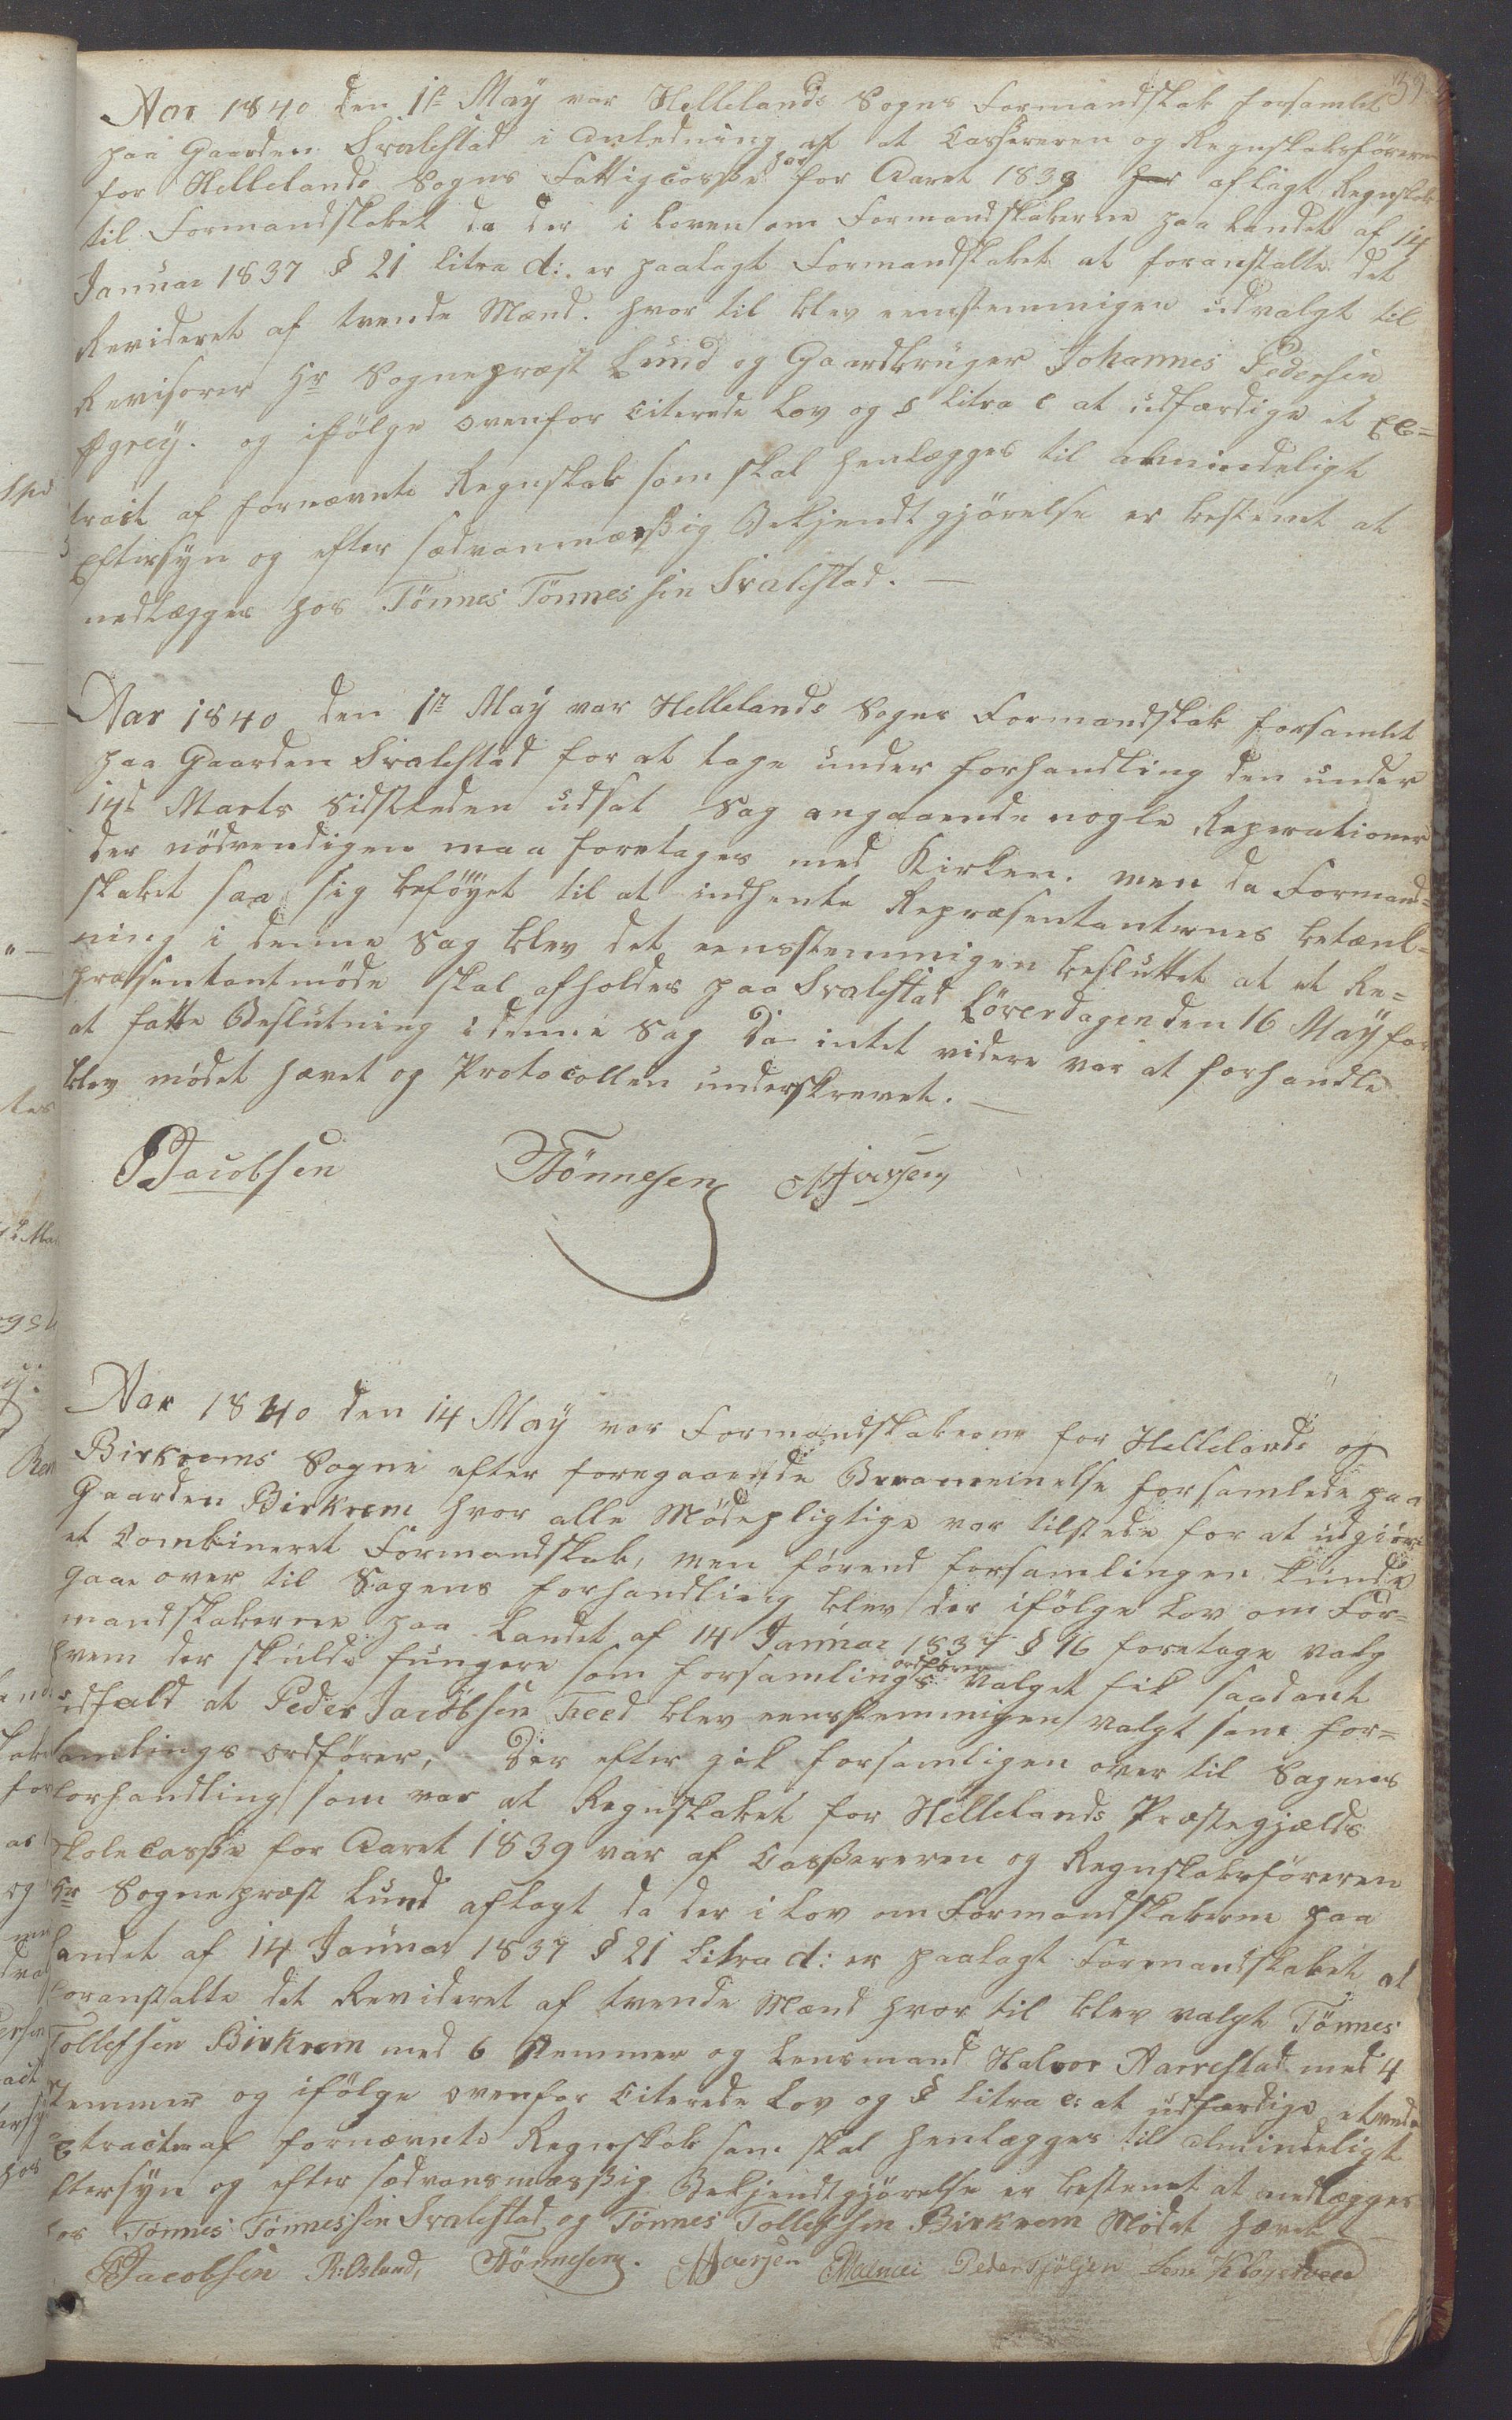 59
Aar 1840 den 1ste May var Hellelands Sogns Formandskab forsamlet
paa Gaarden Svalestad i Anledning af at Casßereren og Regnskabsföreren
for Hellelands Sogns Fattigcasße har for Aaret 1839 har aflagt Regnskab
til Formandskabet da der i Loven om Formandskaberne paa Landet af 14
Januar 1837 § 21 litra d: er paalagt Formandskabet at foranstalte det
Revideret af tvende Mænd. hvor til blev eenstemmigen udvalgt til
Revisorer Hr Sognepræst Lund og Gaardbruger Johannes Pedersen
Øgrey. og ifölge ovenfor Citerede Lov og § litra e at udfærdige et Ex=
tract af fornævnte Regnskab som skal henlægges til almindeligt
Eftersyn og efter sædvanmæsßig Bekjendtgjörelse er bestemt at
nedlægges hos Tönnes Tönnessen Svalestad. —
Aar 1840 den 1ste May var Hellelands Sogns Formandskab forsamlet
paa Gaarden Svalestad for at tage under forhandling den under
14d Marts sidstleden udsat Sag angaaende nogle Reperationer
der nödvendigen maa foretages med Kirken. men da Formand=
skabet saa sig beföyet til at indhente Repræsentanternes betænk=
ning i denne Sag blev det eensstemmigen besluttet at et Re=
præsentantmöde skal afholdes paa Svalestad Löverdagen den 16 May for
at fatte Beslutning i denne Sag Da intet videre var at forhandle
blev mödet hævet og Protocollen underskrevet. —
PJacobsen TTönnesen
Aar 1840 den 14 May var Formandskaberne for Hellelands og
Birkrems Sogne efter foregaaende Berammelse forsamlede paa
Gaarden Birkrem hvor alle Mödepligtige var tilstede for at udgiöre
et Combineret Formandskab, men förend forsamlingen kunde
gaae over til Sagens forhandling blev der ifölge Lov om For=
mandskaberne paa Landet af 14 Januar 1837 § 16 foretage valg
hvem der skulde fungere som forsamlings ordförer valget fik saadant
udfald at Peder Jacobsen Freed blev eensstemmigen valgt som for=
samlings ordförer, Der efter gik forsamligen over til Sagenes
forhandling som var at Regnskabet for Hellelands Præstegjælds
Skolecasße for Aaret 1839 var af Casßereren og Regnskabsföreren
Hr Sognepræst Lund aflagt da der i Lov om Formandskaberne paa
Landet af 14 Januar 1837 § 21 litra d: er paalagt Formandskabet at
foranstalte det Revideret af tvende Mænd hvor til blev valgt Tönnes
Tollefsen Birkrem med 6 Stemmer og Lensmand Halvor Aarrestad med 4
Stemmer og ifölge ovenfor Citerede Lov og § litra e: at udfærdige tvende
Extracter af fornævnte Regnskab som skal henlægges til almindeligt
Eftersyn og efter sædvansmæsßig Bekjendtgjörelse er bestemt at nedlægges
hos Tönnes Tönnessen Svalestad og Tönnes Tollefsen Birkrem Mödet hævet —
PJacobsen R: Osland, TTönnesen.